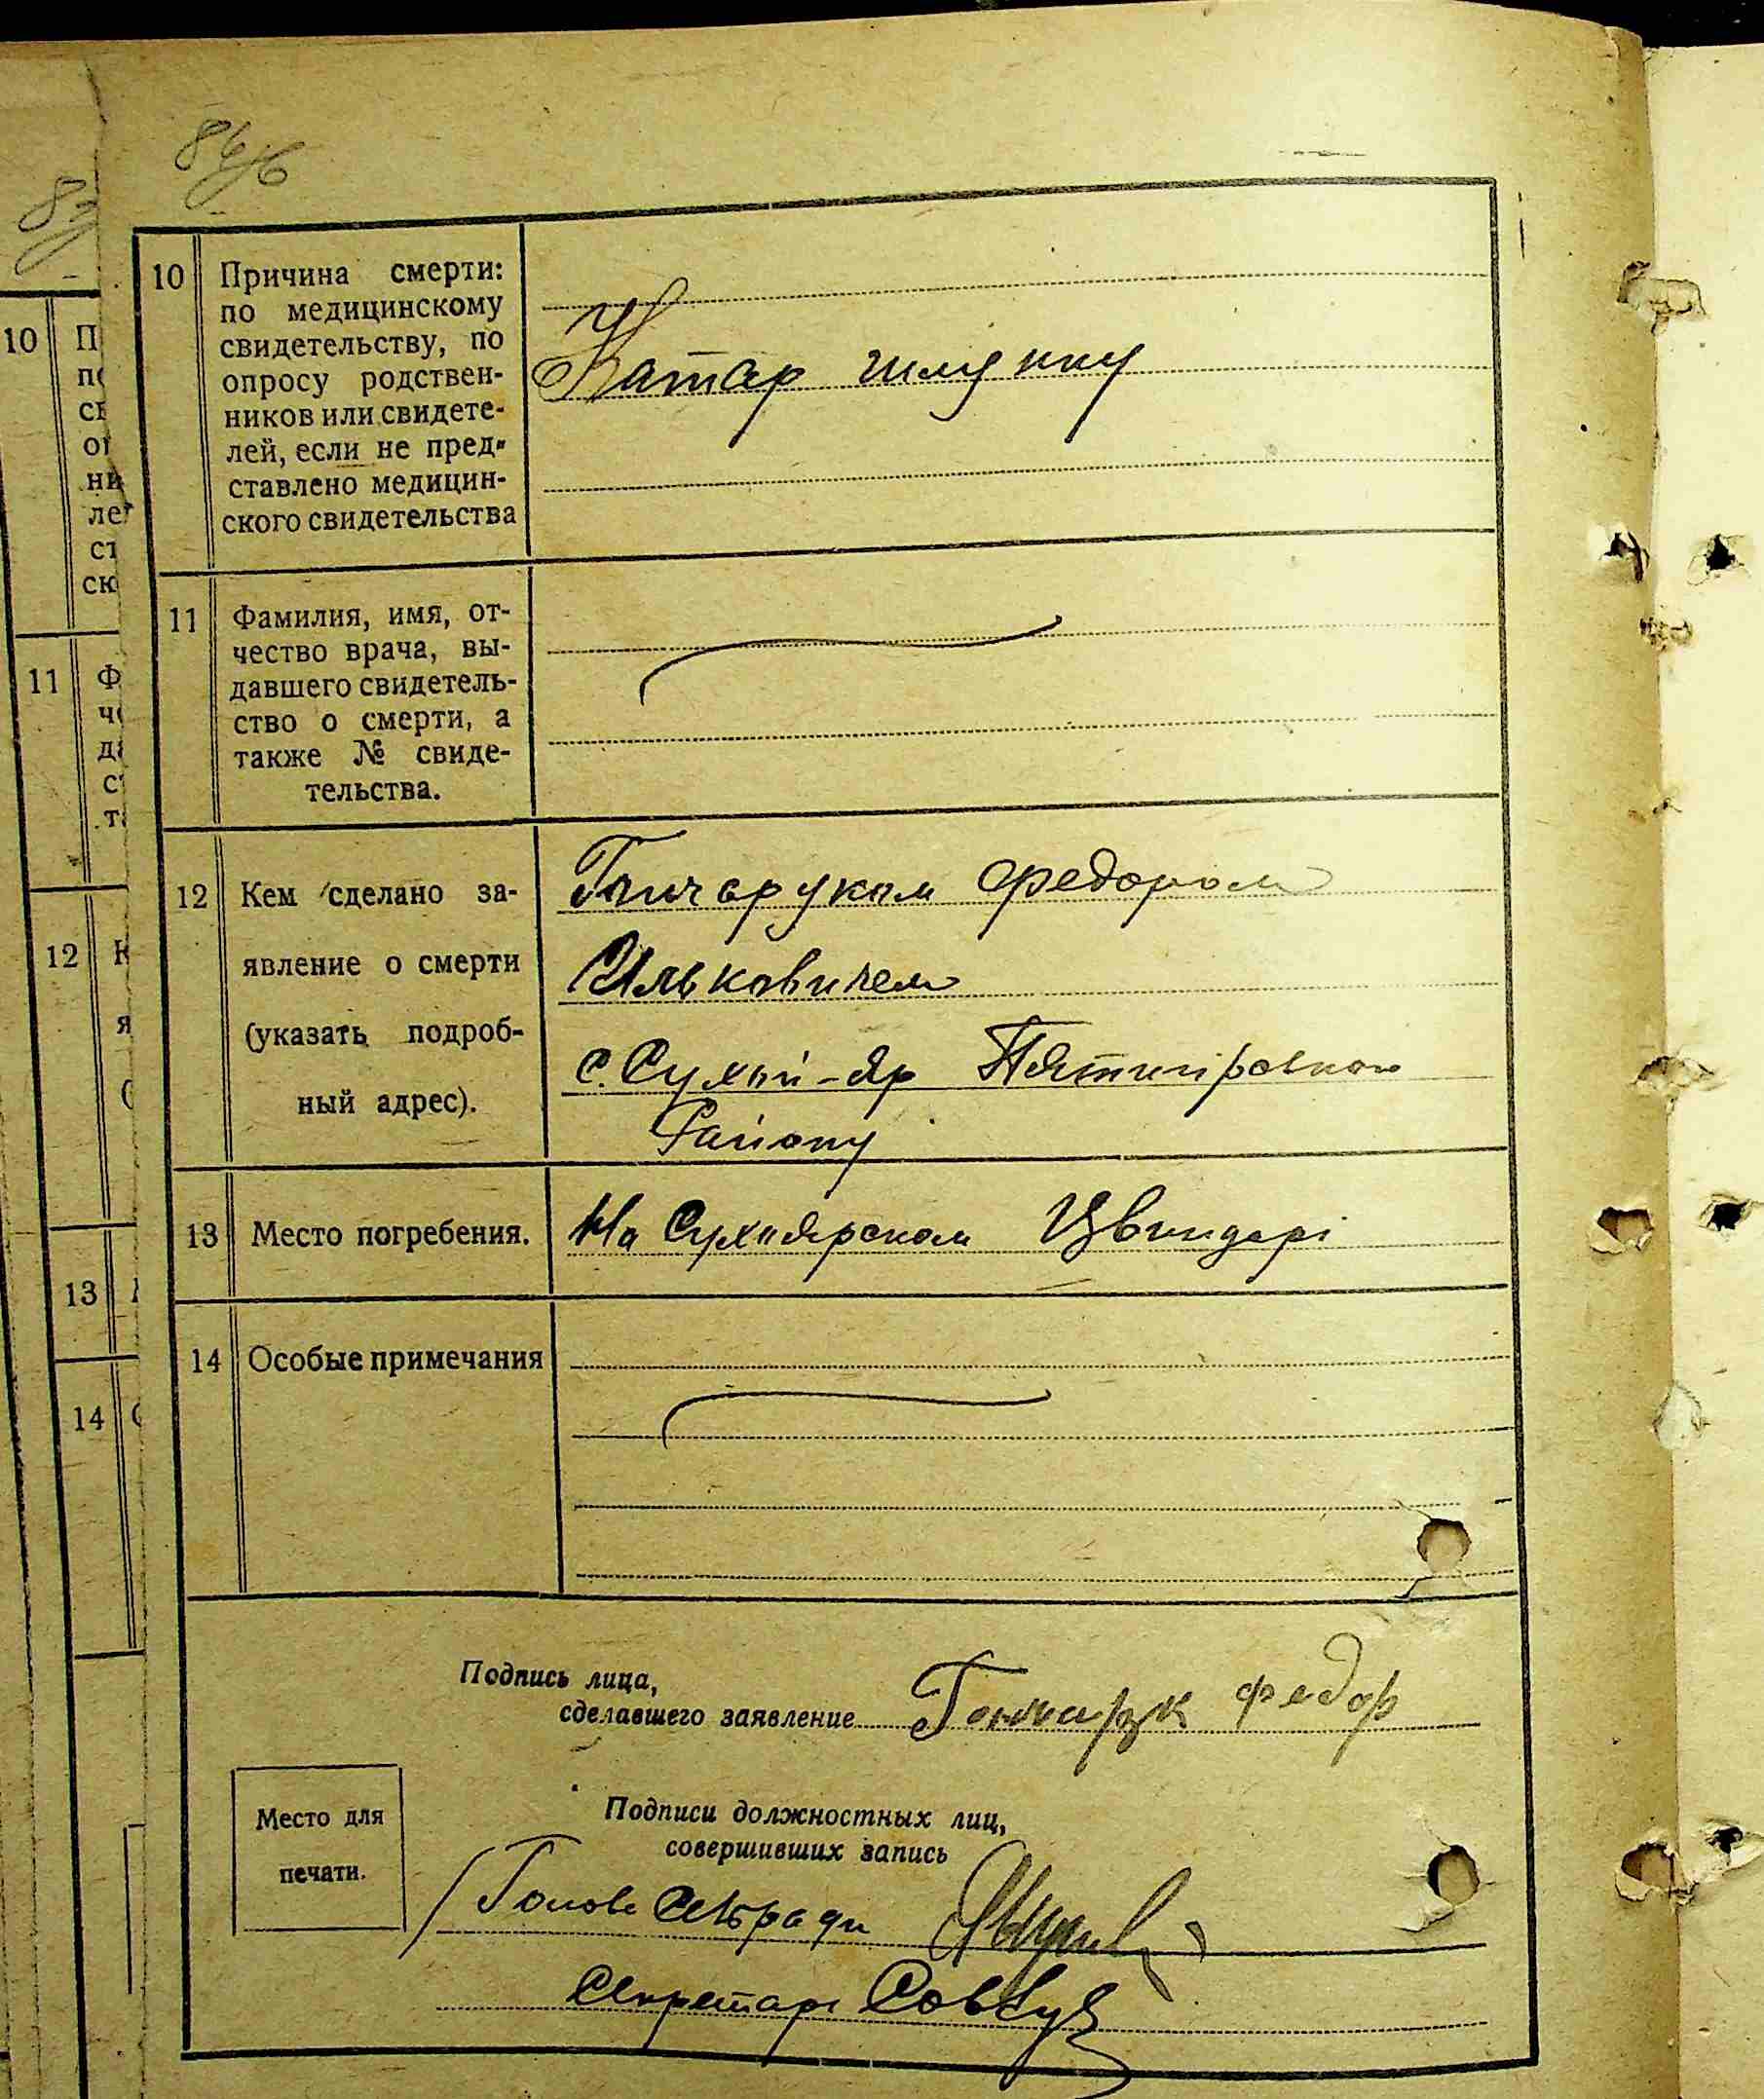 84/6
83
10
Причина смерти:
по медицинскому
свидетельству, по
опросу родствен-
ников или свидете-
лей, если не пред-
ставлено медицин-
ского свидетельства
Катар шлунку
11
Фамилия, имя, от-
чество врача, вы-
давшего свидетель-
ство о смерти, а
также № свиде-
тельства.
12
Кем сделано за-
явление о смерти
(указать подроб-
ный адрес).
Гончаруком Федором
Ильковичем
с. Сухий-Яр Пятигірського
Району
13
Место погребения.
На Сухоярском Цвинтарі
14
Особые примечания
Подпись лица,
сделавшего заявление Гончарук Федор
Место для
печати.
Подписи должностных лиц,
совершивших запись
Голова С/Ради
Секретарь
10
П
по
св
оп
ни
ле
ст
ск
11
Ф
че
да
ст
та
12
К
я
(
13
14